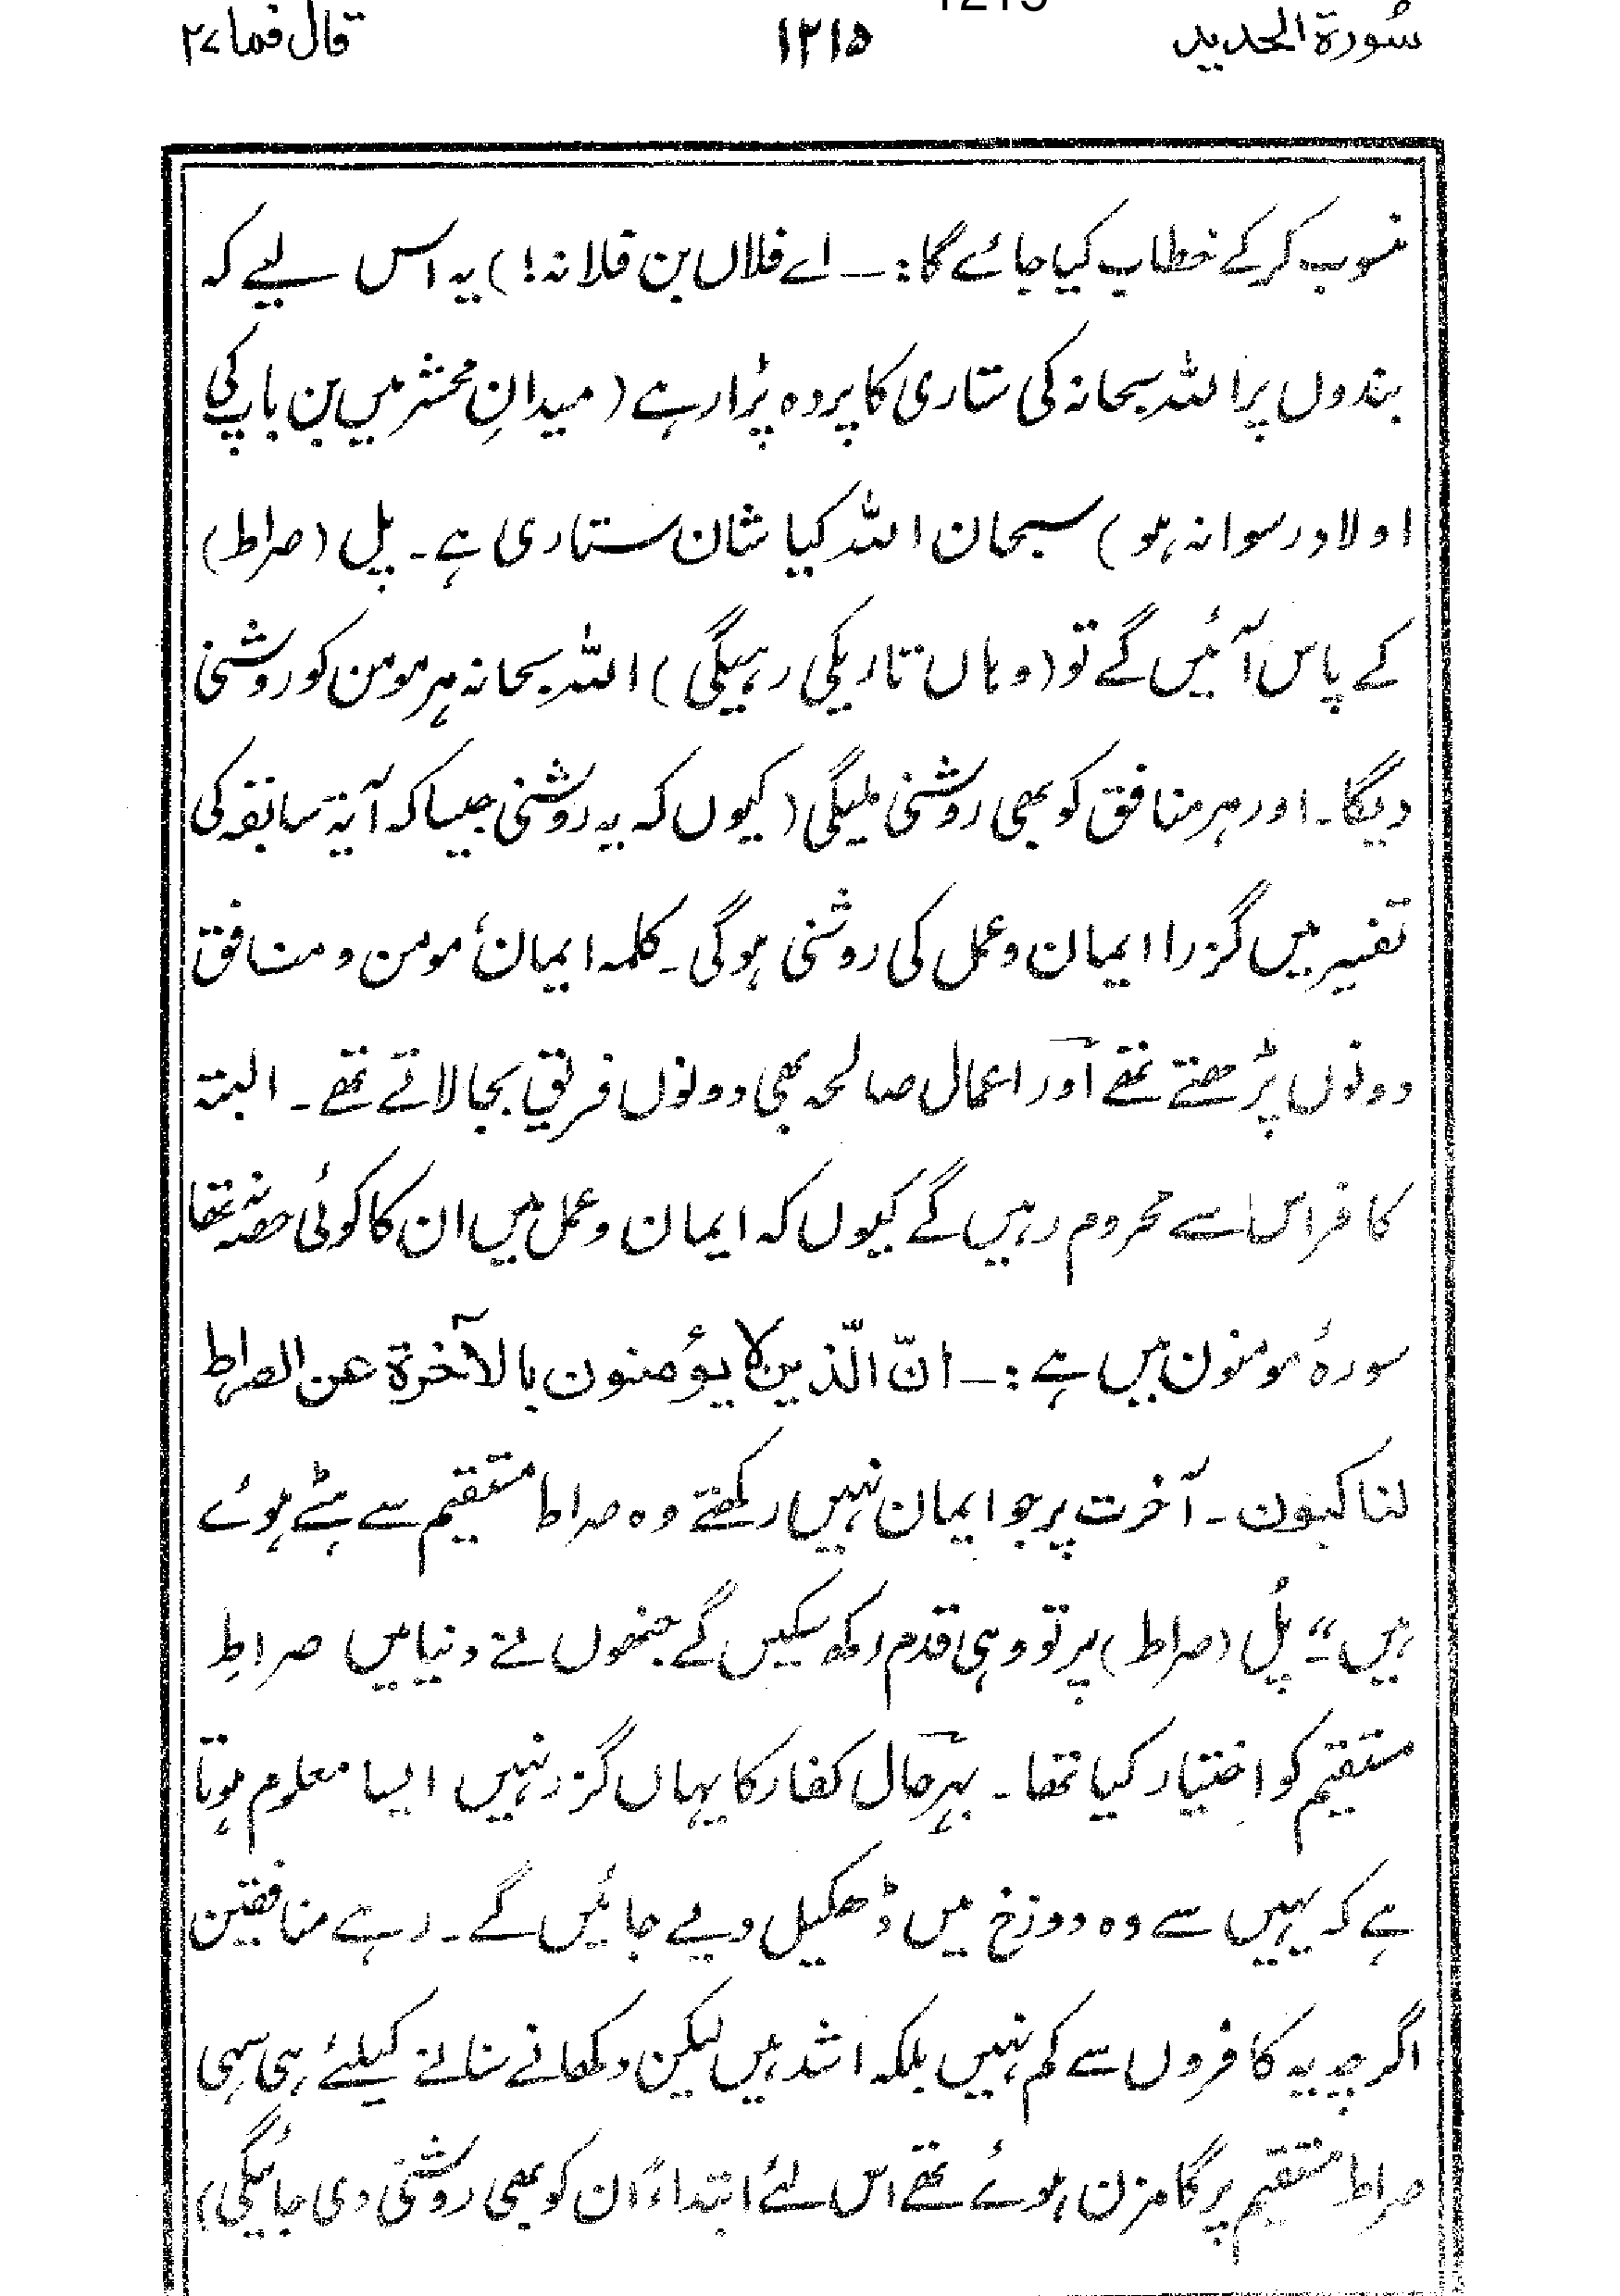 سُورة الحديد ۱۲۱۵ قال فما ۲۷
منسوب کر کے خطاب کیا جائے گا :۔ اے فلاں بن فلانہ !) یہ اس لیے کہ
بندوں پر اللہ سبحانہ کی ستاری کا پردہ پڑا رہے (میدانِ محشر میں بن باپ کی
اولاد رسوا نہ ہو) سبحان اللہ کیا شان ستاری ہے۔ پل (صراط)
کے پاس آئیں گے تو (وہاں تاریکی رہیگی) اللہ سبحانہ ہر مومن کو روشنی
دیگا۔ اور ہر منافق کو بھی روشنی ملیگی (کیوں کہ یہ روشنی جیسا کہ آیۃ سابقہ کی
تفسیر میں گزرا ایمان و عمل کی روشنی ہوگی۔ کلمہ ایمان، مومن و منافق
دونوں پڑھتے تھے اور اعمال صالحہ بھی دونوں فریق بجا لاتے تھے۔ البتہ
کافر اس سے محروم رہیں گے کیوں کہ ایمان و عمل میں ان کا کوئی حصہ نہ تھا
سورۂ مومنون میں ہے :۔ انّ الّذین لا یؤمنون بالآخرة عن الصراط
لناکبون۔ آخرت پر جو ایمان نہیں رکھتے وہ صراط مستقیم سے ہٹے ہوئے
ہیں“۔ پُل (صراط) پر تو وہی قدم رکھ سکیں گے جنھوں نے دنیا میں صراطِ
مستقیم کو اختیار کیا تھا۔ بہرحال کفار کا یہاں گزر نہیں ایسا معلوم ہوتا
ہے کہ یہیں سے وہ دوزخ میں ڈھکیل دیے جائیں گے۔ رہے منافقین
اگرچہ یہ کافروں سے کم نہیں بلکہ اشد ہیں لیکن دکھانے سنانے کیلئے ہی سہی
صراط مستقیم پر گامزن ہوئے تھے اس لئے ابتداءً ان کو بھی روشنی دی جائیگی)